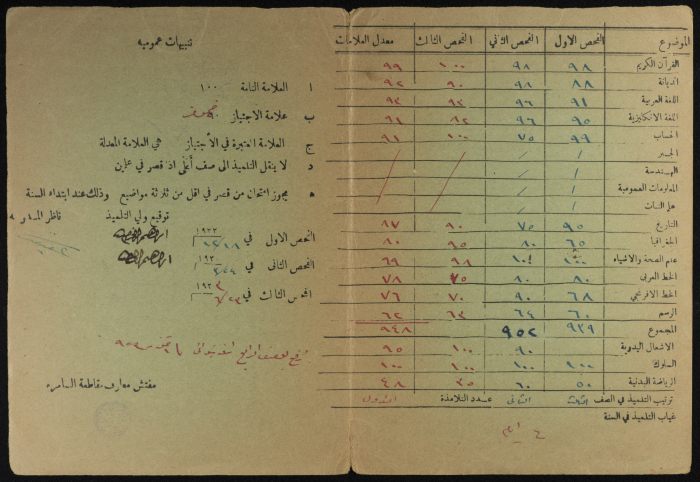 الموضوع الفحص الأول الفحص الثاني الفحص الثالث معدل العلامات
القرآن الكريم ٩٨ ٩٨ ١٠٠ ٩٩
الديانة ٨٨ ٩٨ ٩٠ ٩٢
اللغة العربية ٩١ ٩٦ ٩٣ ٩٣
اللغة الانكليزية ٩٥ ٩٦ ٨٢ ٩١
الحساب ٩٩ ٧٥ ١٠٠ ٩١
الجبر / /
الهندسة / /
المعلومات العمومية / /
علم النبات / /
التاريخ ٩٥ ٧٥ ٩٠ ٨٧
الجغرافيا ٦٥ ٨٠ ٩٥ ٨٠
علم الصحة والاشياء ١٠٠ ٩٨ ٦٩
الخط العربي ٨٠ ٨٠ ٧٥ ٧٨
الخط الافرنجي ٦٨ ٩٠ ٧٠ ٧٦
الرسم ٦٠ ٦٤ ٦٣ ٦٢
المجموع ٩٣٩ ٩٥٢ ٩٤٨
الاشغال اليدوية ٩٠ ١٠٠ ٩٥
السلوك ١٠٠ ١٠٠ ١٠٠ ١٠٠
الرياضة البدنية ٥٠ ٦٠ ٣٥ ٤٨
ترتيب التلميذ في الصف الثالث الثاني عدد التلامذة
غياب التلميذ في السنة
٤ ايام
تنبيهات عمومية
ا العلامة التامة ١٠٠
ب علامة الاجتياز
ج العلامة المعتبرة في الاجتياز هي العلامة المعدلة
د لا ينقل التلميذ الى صف أعلى اذا قصر في علمين
ه يجوز امتحان من قصر في اقل من ثلاثة مواضيع وذلك عند ابتداء السنة
توقيع ولي التلميذ ناظر المدرسة
الفحص الاول في ١٩٢٣ ١٢/١٨ ابراهيم
الفحص الثاني في ١٩٢ ٣/٢٤ ابراهيم
الفحص الثالث في ١٩٢ ٦/٢٣
مفتش معارف مقاطعة السامرة